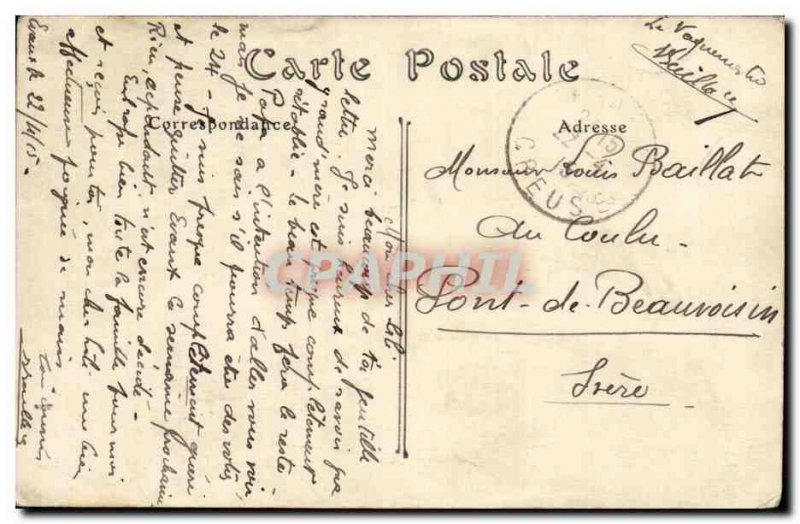 Carte Postale
Correspondance
Adresse
Le Vaguemestre
Baillat
15
22 - 4
15
CREUSE
Monsieur Louis Baillat
Au Coulu -
Pont-de-Beauvoisin
Isère
Mon cher Lili
Merci beaucoup de ta gentille
lettre. Je suis heureux de savoir que
grand'mère est presque complètement
rétablie - le beau temps fera le reste
Papa a l'intention d'aller vous voir
mais je ne sais s'il pourra être des vôtres
le 24 - Je suis presque complètement guéri
et pense quitter Evaux la semaine prochaine
Rien cependant n'est encore décidé -
Embrasse bien toute la famille pour moi
et reçois pour toi, mon cher Lili une bien
affectueuse poignée de mains
Evaux le 22/4/15 -
CPAPHIL